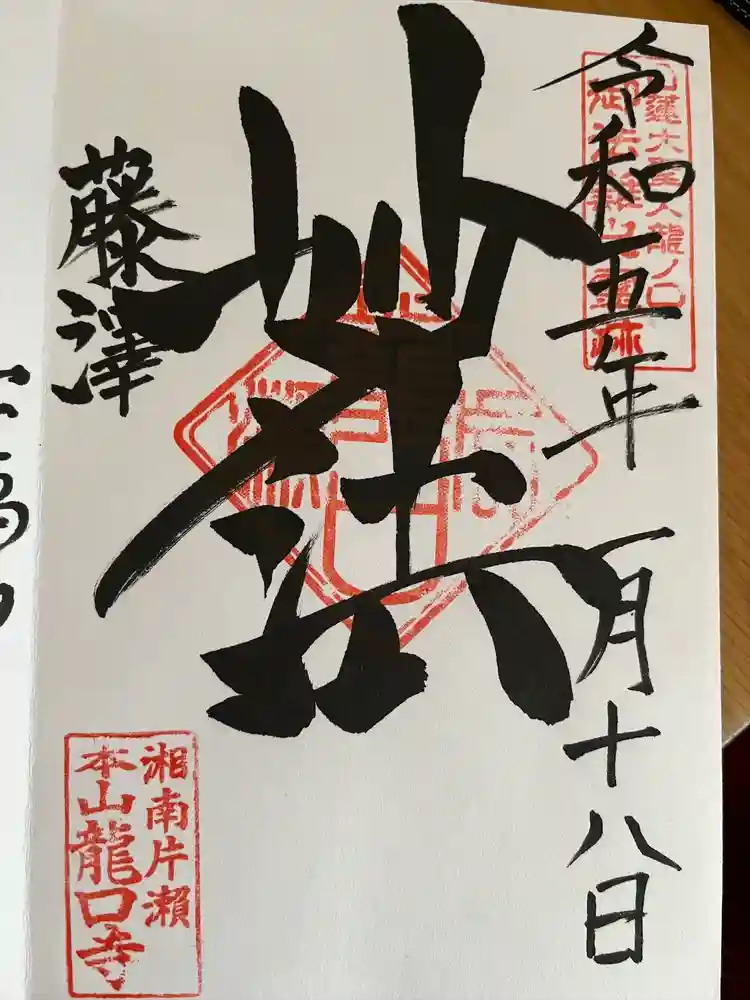 令和五年 一月十八日
日蓮大聖人龍ノ口
御法難之霊跡
妙法
藤澤
湘南片瀬
本山龍口寺